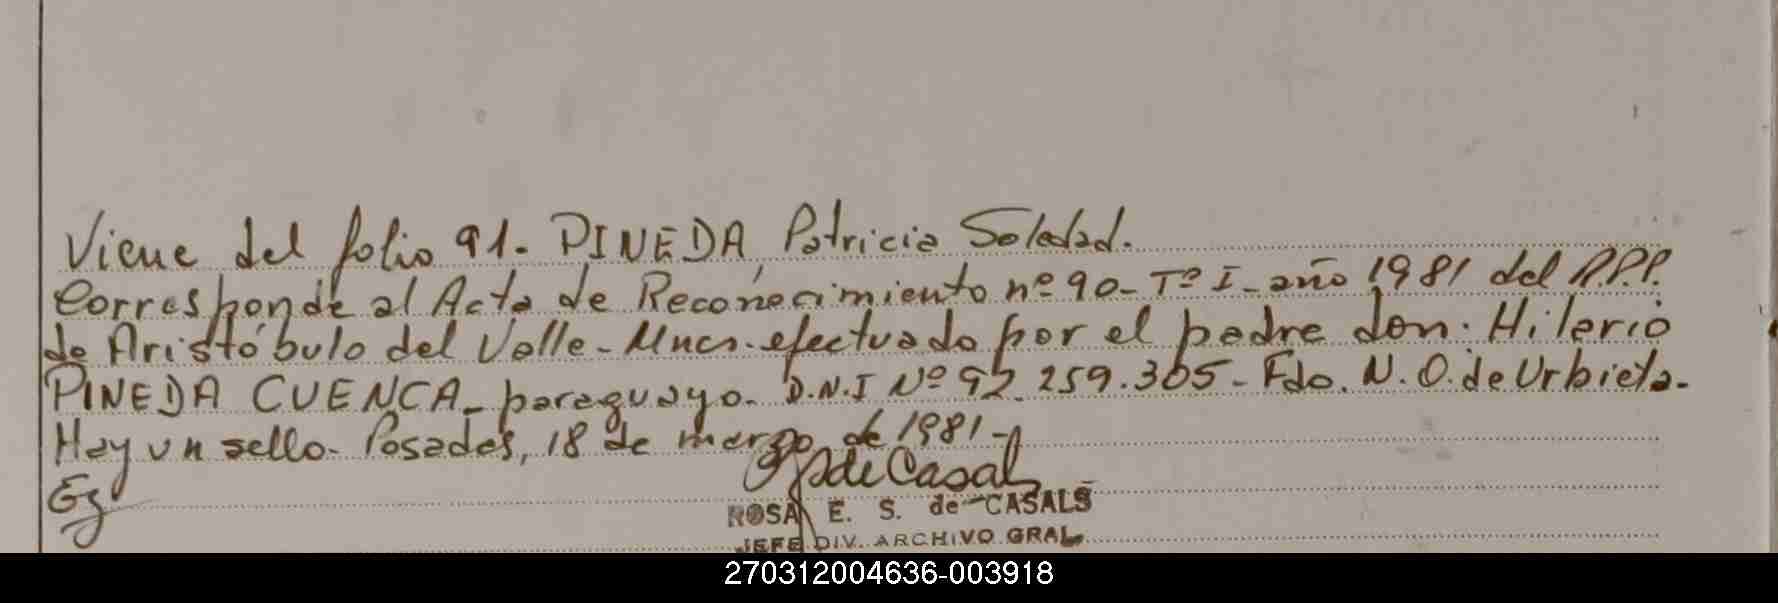 Viene del folio 91. PINEDA, Patricia Soledad.
Corresponde al Acta de Reconocimiento nº 90- Tº I- año 1981 del R.P.P.
de Aristóbulo del Valle- Mnes. efectuado por el padre don. Hilario
PINEDA CUENCA- paraguayo. D.N.I Nº 92.259.305- Fdo. N. O. de Urbieta-
Hay un sello- Posadas, 18 de marzo de 1981-
de Casal
Ez
ROSA E. S. de CASALS
JEFE DIV. ARCHIVO GRAL.
270312004636-003918